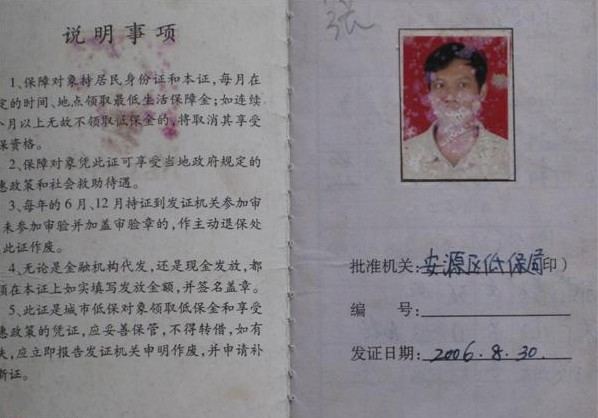 说明事项
1、保障对象持居民身份证和本证，每月在
定的时间、地点领取最低生活保障金；如连续
个月以上无故不领取低保金的，将取消其享受
保资格。
2、保障对象凭此证可享受当地政府规定的
惠政策和社会救助待遇。
3、每年的6月、12月持证到发证机关参加审
未参加审验并加盖审验章的，作主动退保处
此证作废。
4、无论是金融机构代发，还是现金发放，都
须在本证上如实填写发放金额，并签名盖章。
5、此证是城市低保对象领取低保金和享受
惠政策的凭证，应妥善保管，不得转借，如有
失，应立即报告发证机关申明作废，并申请补
新证。
张
批准机关：安源区低保局印）
编 号：
发证日期：2006.8.30.